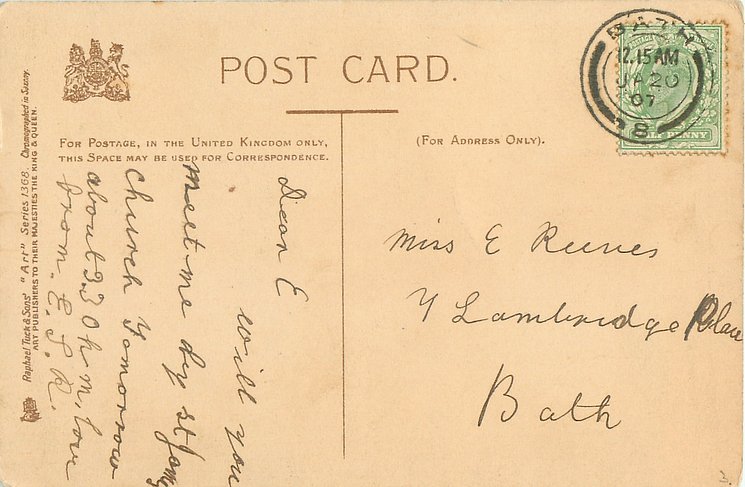 POST CARD.
FOR POSTAGE, IN THE UNITED KINGDOM ONLY,
THIS SPACE MAY BE USED FOR CORRESPONDENCE.
(FOR ADDRESS ONLY).
BATH
12.15AM
JA 20
07
8
HALF PENNY
Raphael Tuck & Sons' "Art" Series 1368. Chromographed in Saxony.
ART PUBLISHERS TO THEIR MAJESTIES THE KING & QUEEN.
Dear E
will you
meet me by st
church Tomorrow
about 3.30 love
from. E.
Miss E Reeves
Lambridge Place
Bath